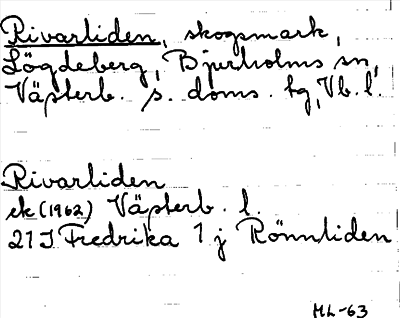 Rivarliden, skogsmark,
Lögdeberg, Bjurholms sn,
Västerb. s. doms. tg, Vb. l.
Rivarliden
ek (1962) Västerb. l.
21 I Fredrika 1 j Rönnliden
ML-63